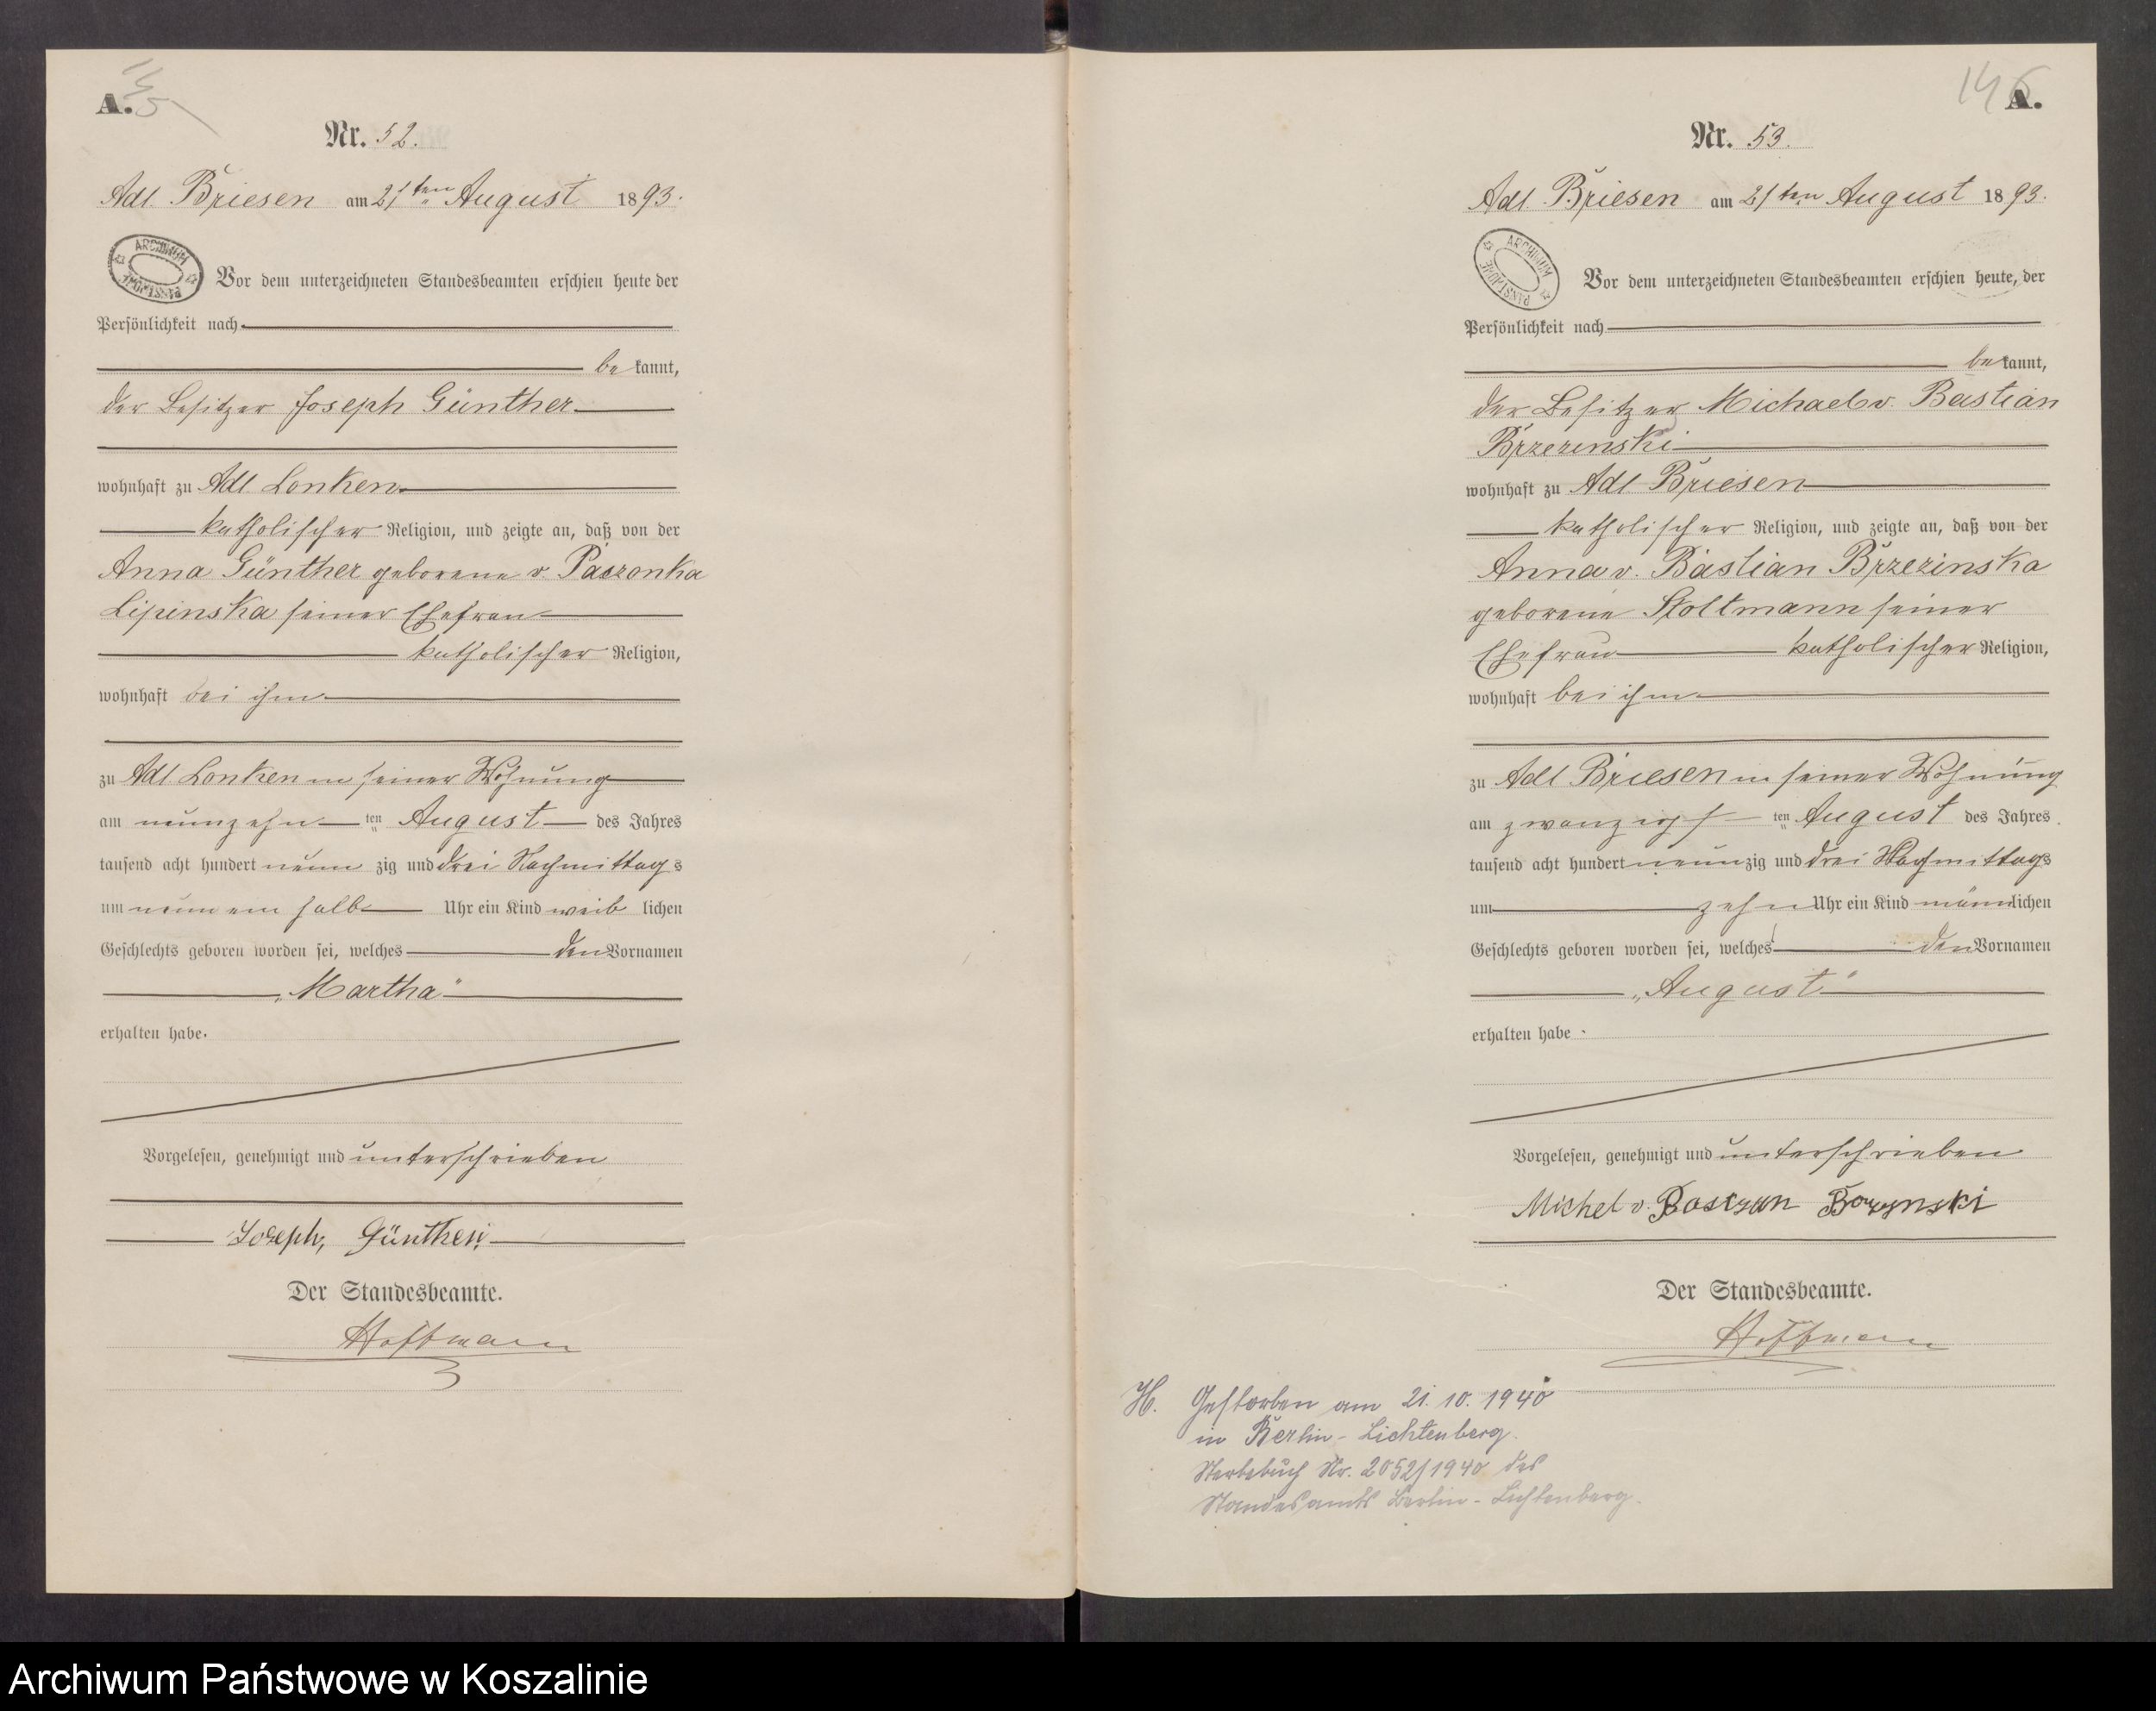 A.
Nr. 52.
Adl. Briesen am 21ten August 1893.
ARCHIWUM PAŃSTWOWE
Vor dem unterzeichneten Standesbeamten erschien heute der
Persönlichkeit nach
bekannt,
der Besitzer Joseph Günther
wohnhaft zu Adl. Lonken
katholischer Religion, und zeigte an, daß von der
Anna Günther geborene v. Paszonka
Lipinska seiner Ehefrau
katholischer Religion,
wohnhaft bei ihm
zu Adl. Lonken in seiner Wohnung
am neunzehn ten August des Jahres
tausend acht hundert neun zig und drei Nachmittags
um neun ein halb Uhr ein Kind weiblichen
Geschlechts geboren worden sei, welches den Vornamen
„Martha"
erhalten habe.
Vorgelesen, genehmigt und unterschrieben
Joseph, Günther
Der Standesbeamte.
Hoffmann
146
A.
Nr. 53.
Adl. Briesen am 21ten August 1893.
ARCHIWUM PAŃSTWOWE
Vor dem unterzeichneten Standesbeamten erschien heute, der
Persönlichkeit nach
bekannt,
der Besitzer Michael v. Bastian
Brzezinski
wohnhaft zu Adl. Briesen
katholischer Religion, und zeigte an, daß von der
Anna v. Bastian Brzezinska
geborene Stoltmann seiner
Ehefrau katholischer Religion,
wohnhaft bei ihm
zu Adl. Briesen in seiner Wohnung
am zwanzigs ten August des Jahres
tausend acht hundert neunzig und drei Nachmittags
um zehn Uhr ein Kind männlichen
Geschlechts geboren worden sei, welches den Vornamen
„August"
erhalten habe.
Vorgelesen, genehmigt und unterschrieben
Michel v.
Der Standesbeamte.
Hoffmann
H. Gestorben am 21. 10. 1940
in Berlin - Lichtenberg.
Sterbebuch Nr. 2052/1940 des
Standesamts Berlin - Lichtenberg.
Archiwum Państwowe w Koszalinie